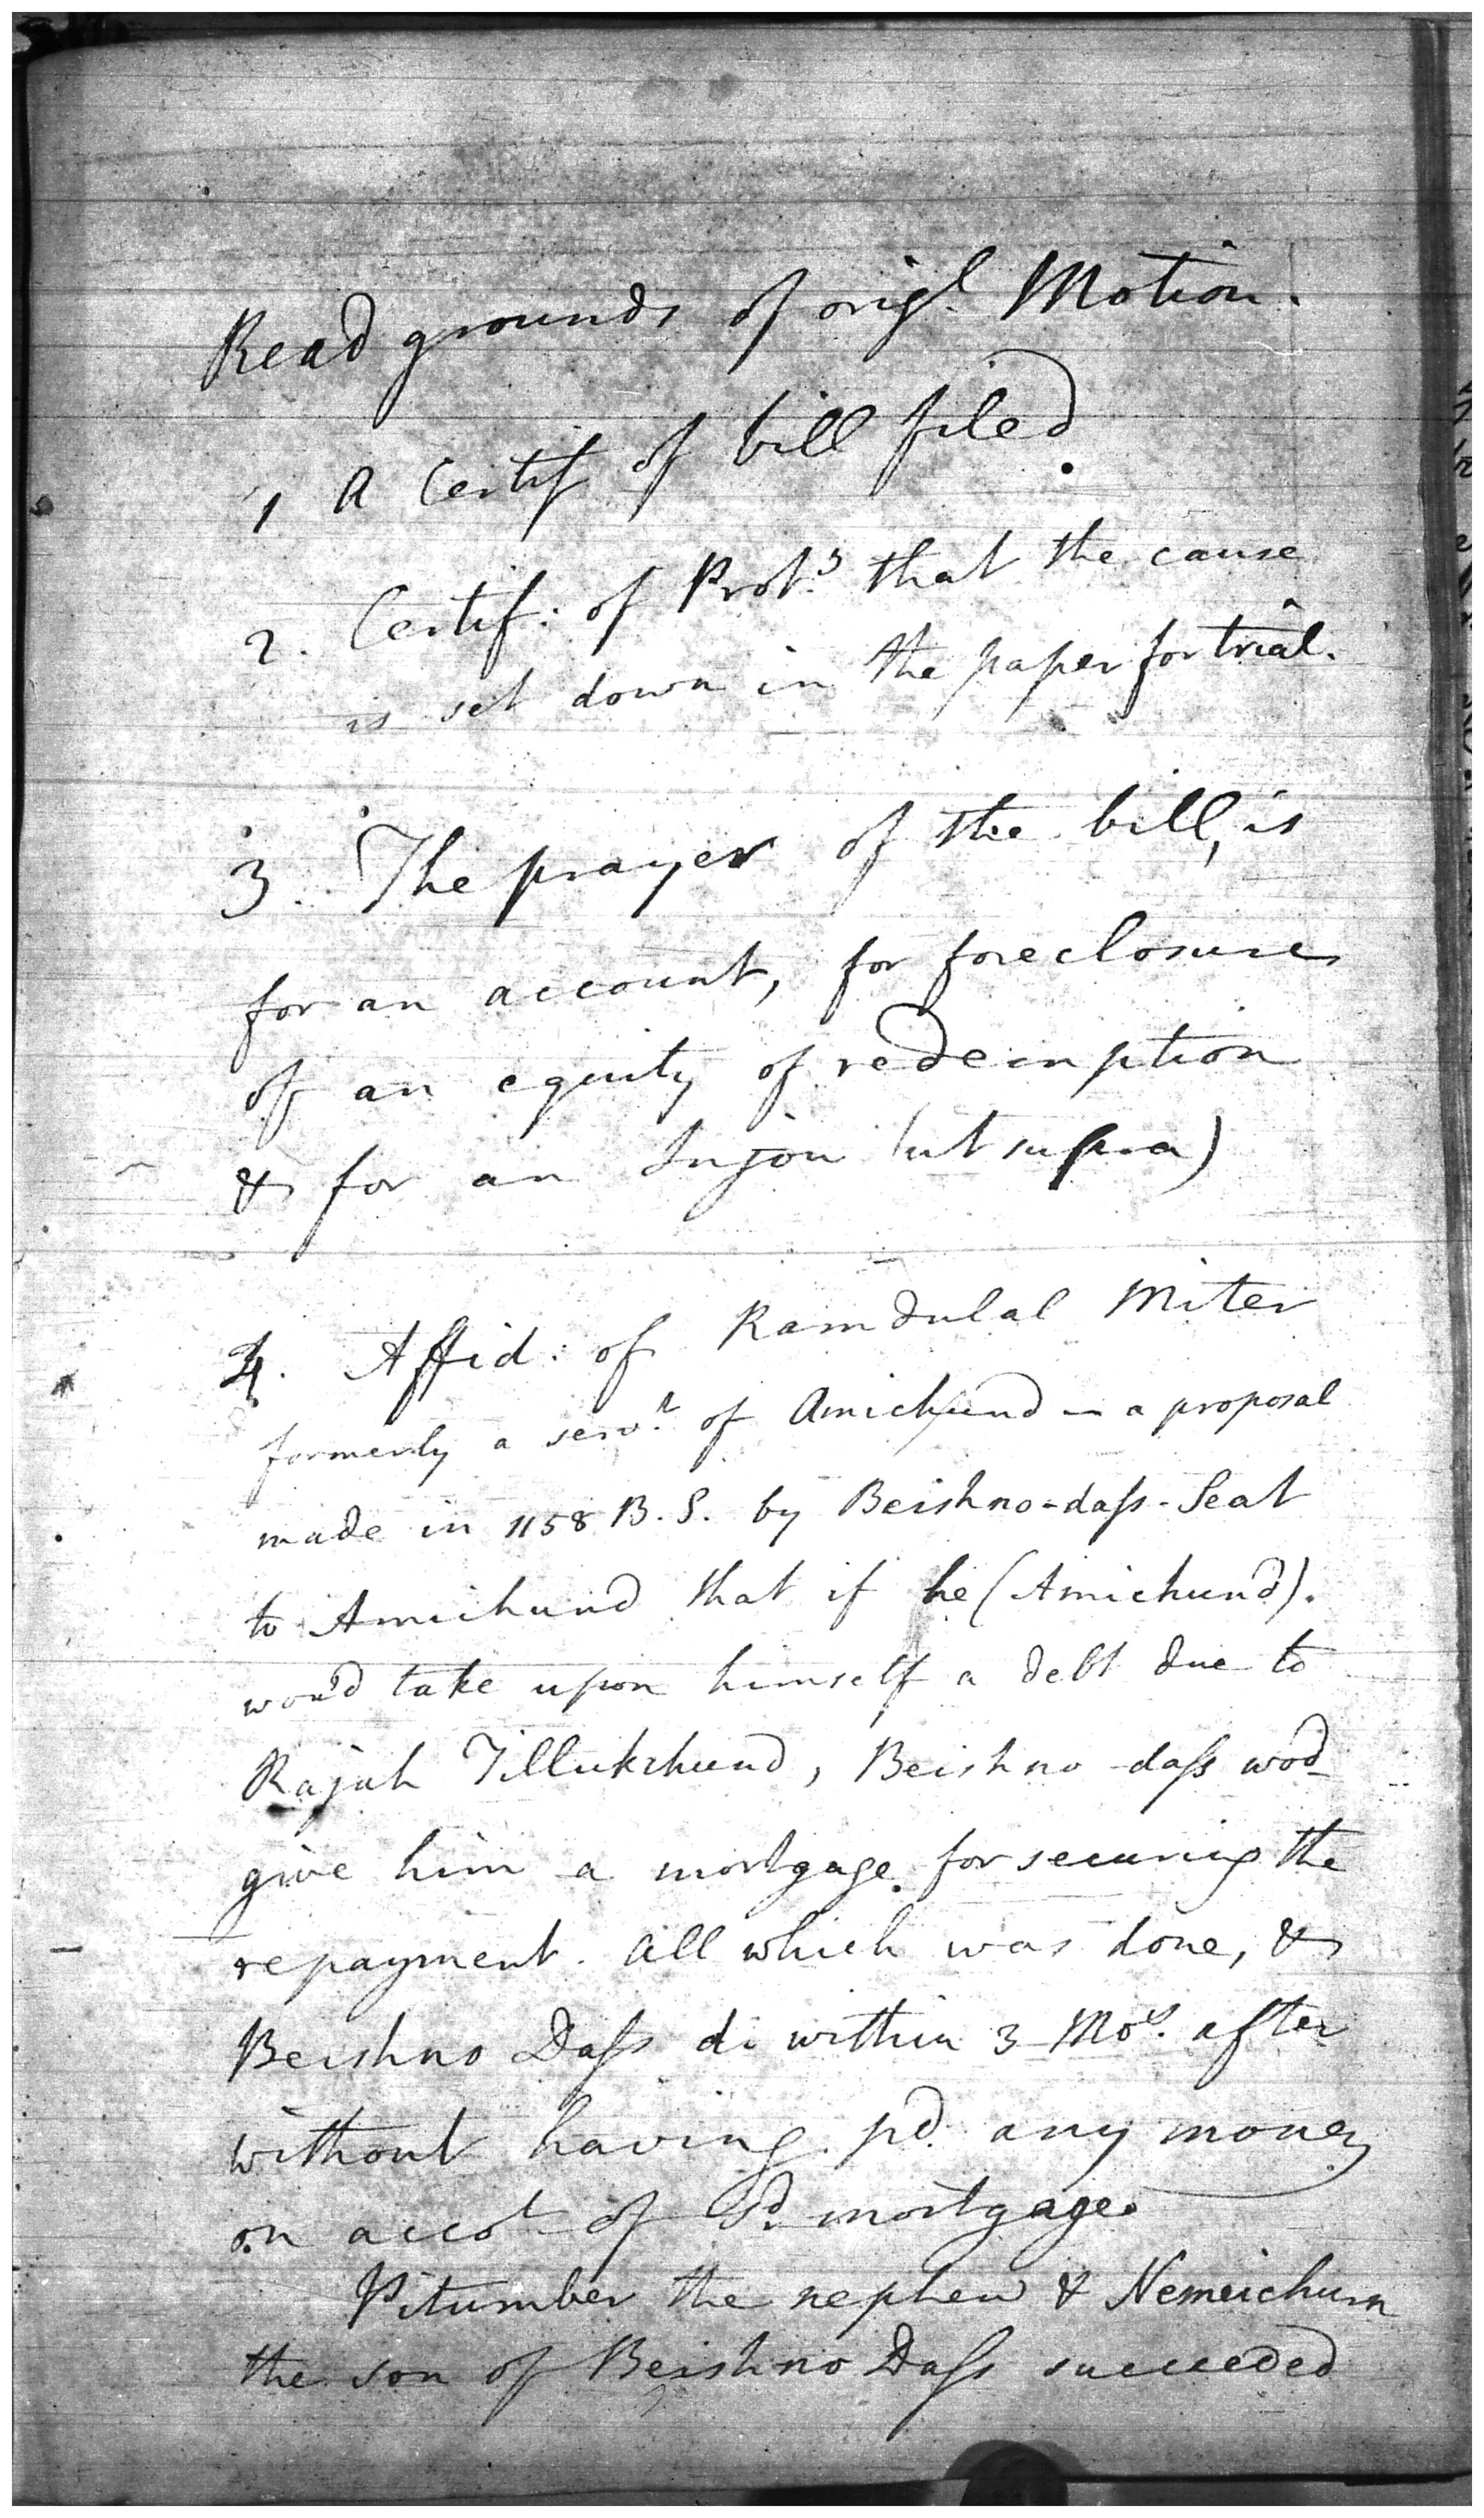 Read grounds of orig<sup>l</sup>. Motion.
1 A Certif of bill filed.
2. Certif: of Prot<sup>y</sup>. that the cause
is set down in the paper for trial.
3. The prayer of the bill, is
for an account, for foreclosure
of an equity of redemption
& for an Injōn (ut supra)
4. Affid: of Ramdulal Miter
formerly a serv<sup>t</sup>. of Amichund — a proposal
made in 1158 B.S. by Beishno-daſs-Seat
to Amichund that if he (Amichund).
wou'd take upon himself a debt due to
Rajah Tillukchund, Beishno-daſs wod
give him a mortgage for securing the
repayment. All which was done, &
Beishno Daſs di within 3 Mo<sup>s</sup>. after
without having pd. any money
on acco<sup>t</sup> of s<sup>d</sup>. mortgage.
Pitumber the nephew & Nemeichurn
the son of Beishno Daſs succeeded